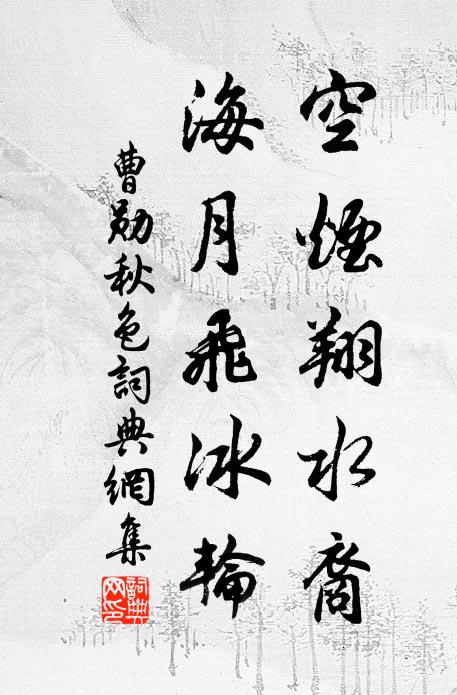 空煙翔水裔
海月飛冰輪
曹勛秋色詞典網集